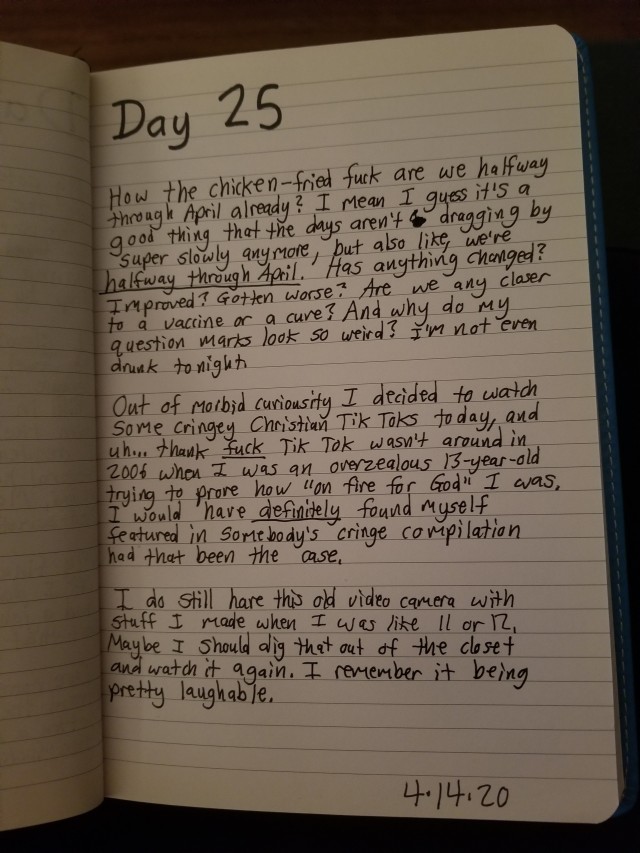 Day 25
How the chicken-fried fuck are we halfway
through April already? I mean I guess it's a
good thing that the days aren't dragging by
super slowly anymore, but also like, we're
halfway through April. Has anything changed?
Improved? Gotten worse? Are we any closer
to a vaccine or a cure? And why do my
question marks look so weird? I'm not even
drunk tonight
Out of morbid curiousity I decided to watch
some cringey Christian Tik Toks today, and
uh... thank fuck Tik Tok wasn't around in
2006 when I was an overzealous 13-year-old
trying to prove how "on fire for God" I was.
I would have definitely found myself
featured in somebody's cringe compilation
had that been the case.
I do still have this old video camera with
stuff I made when I was like 11 or 12.
Maybe I should dig that out of the closet
and watch it again. I remember it being
pretty laughable.
4.14.20